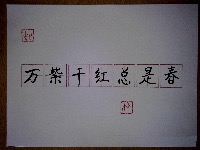 万紫千红总是春